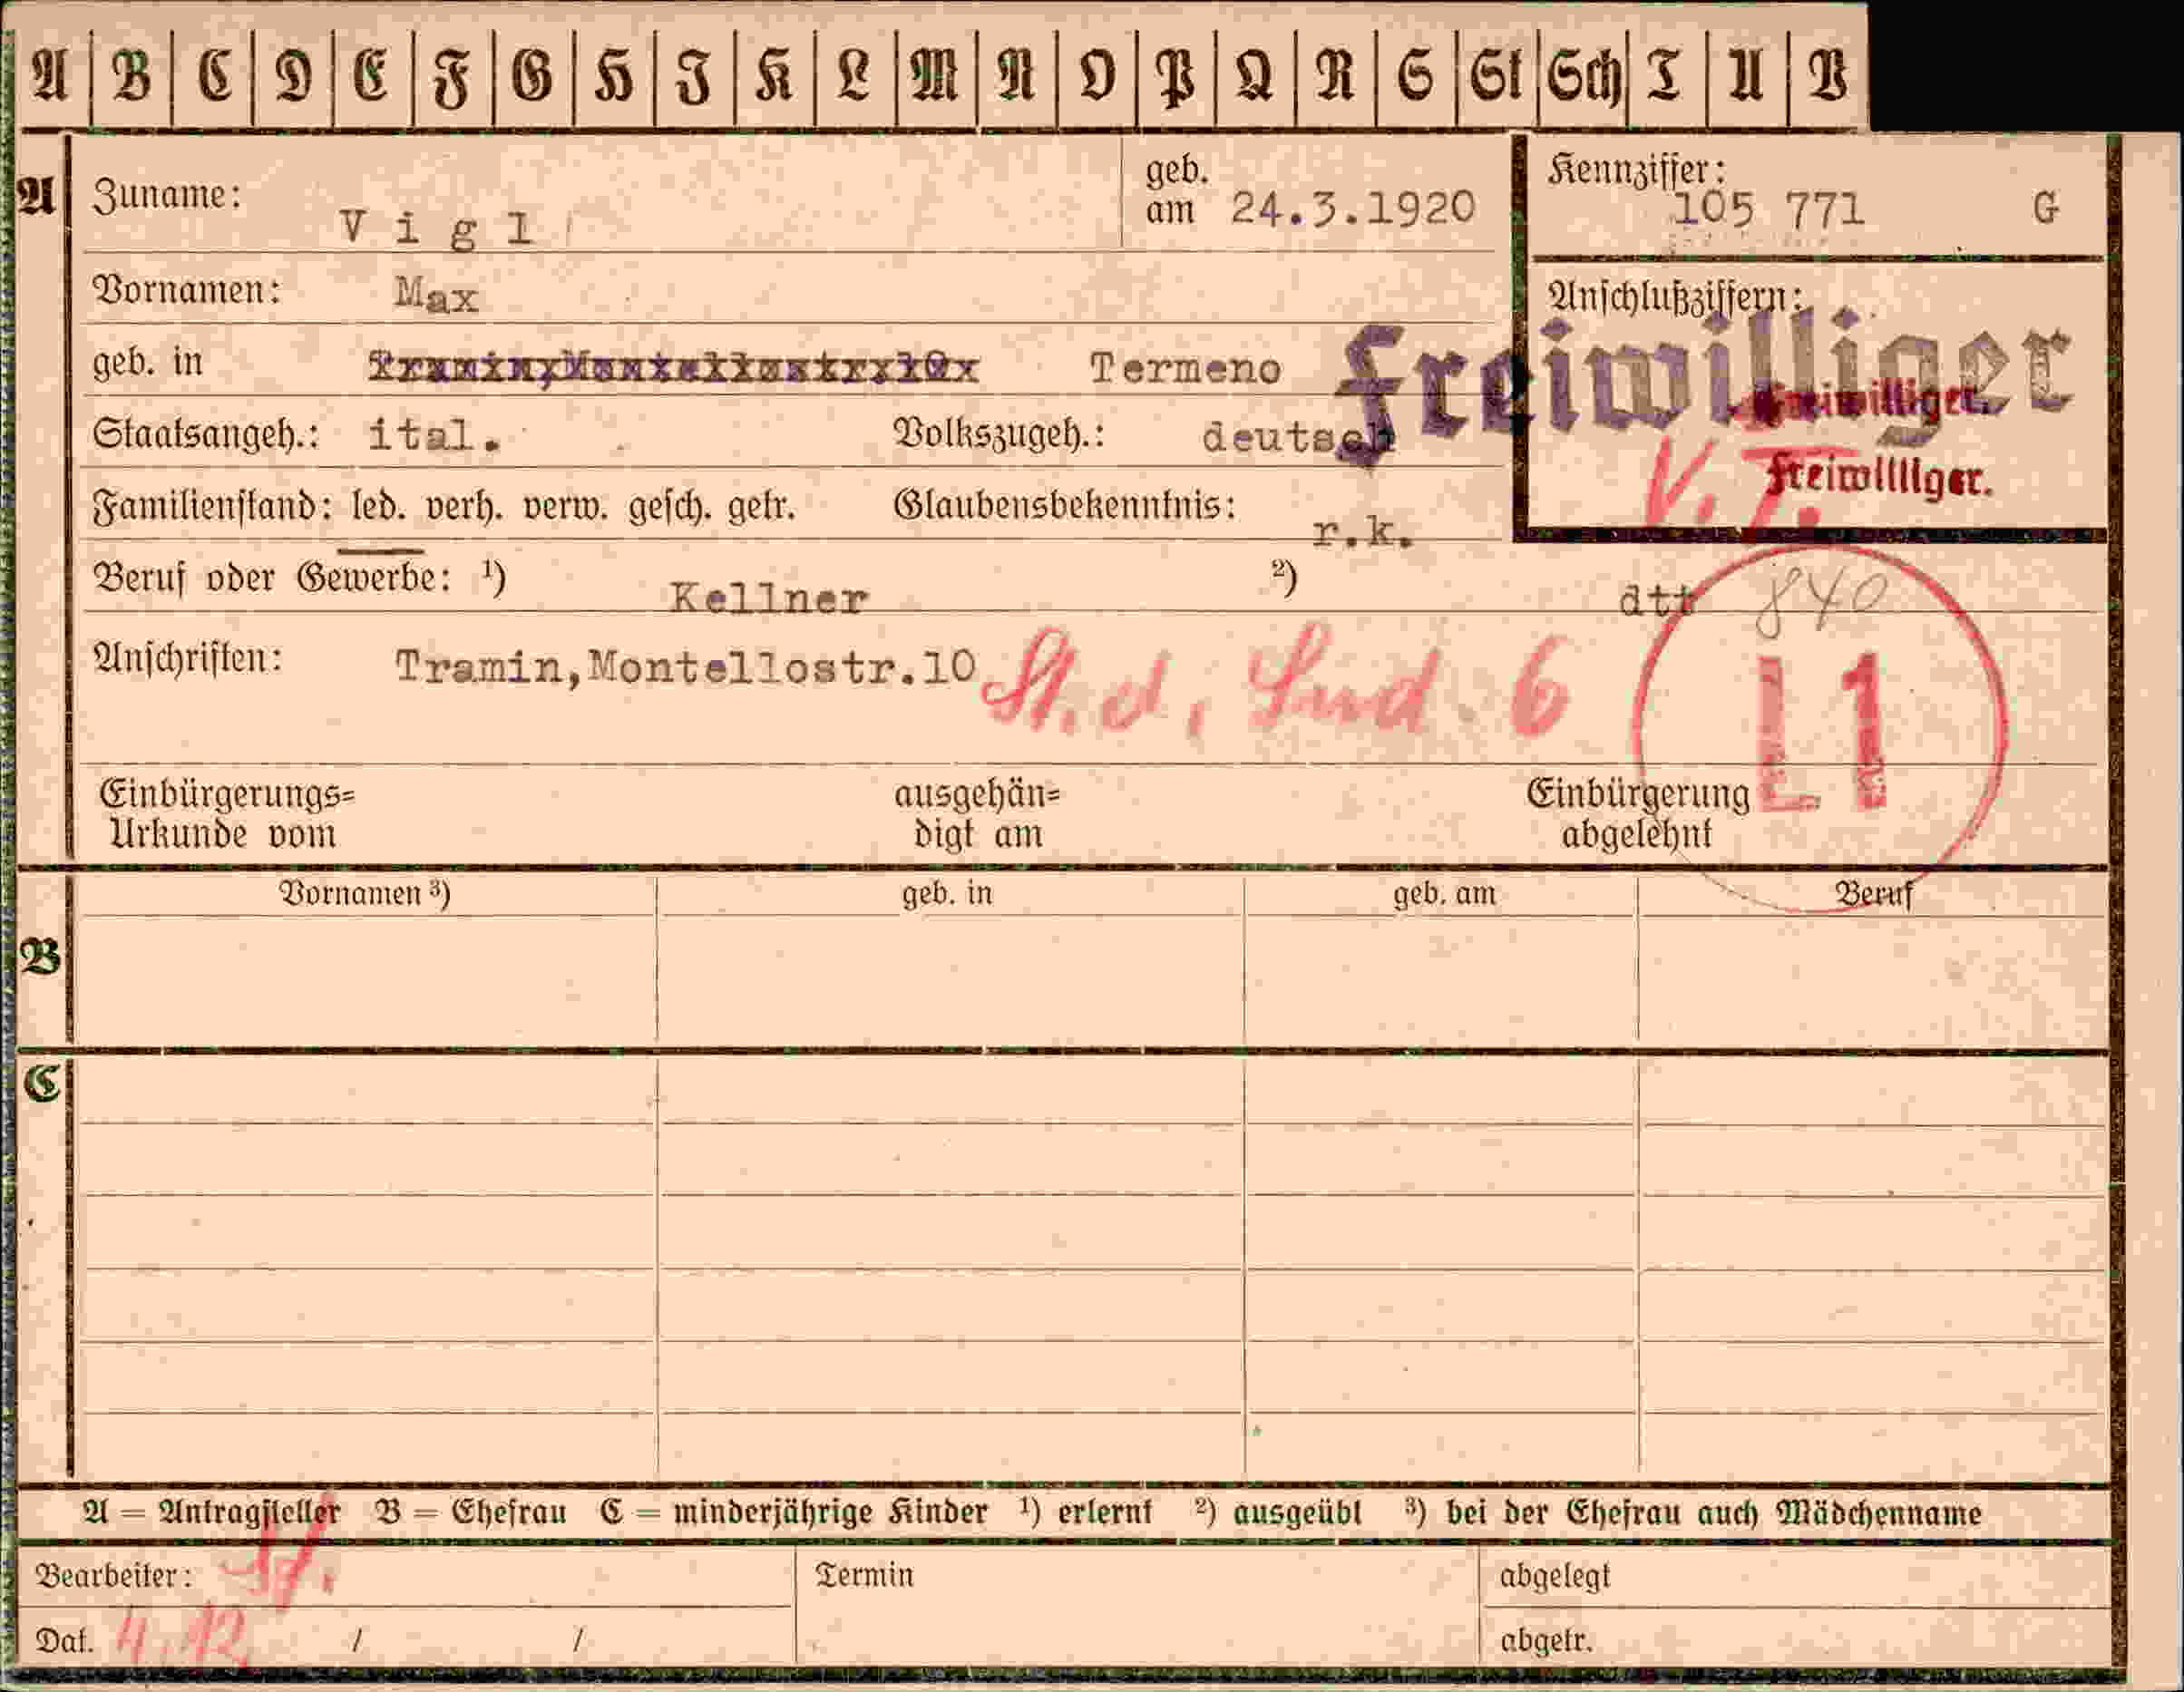 A B C D E F G H J K L M N O P Q R S St Sch T U V
A Zuname: Vigl geb. am 24.3.1920 Kennziffer: 105 771 G
Vornamen: Max Anschlußziffern:
geb. in Termeno freiwilliger
freiwilliger.
Staatsangeh.: ital. Volkszugeh.: deutsch
V. T. freiwilliger.
Familienstand: led. verh. verw. gesch. getr. Glaubensbekenntnis: r.k.
Beruf oder Gewerbe: ¹) Kellner ²) dtt 840
Anschriften: Tramin,Montellostr.10 6 L1
Einbürgerungs= ausgehän= Einbürgerung
Urkunde vom digt am abgelehnt
Vornamen ³) geb. in geb. am Beruf
B
C
A = Antragsteller B = Ehefrau C = minderjährige Kinder ¹) erlernt ²) ausgeübt ³) bei der Ehefrau auch Mädchenname
Bearbeiter: Termin abgelegt
Dat. 4.12 / / abgetr.